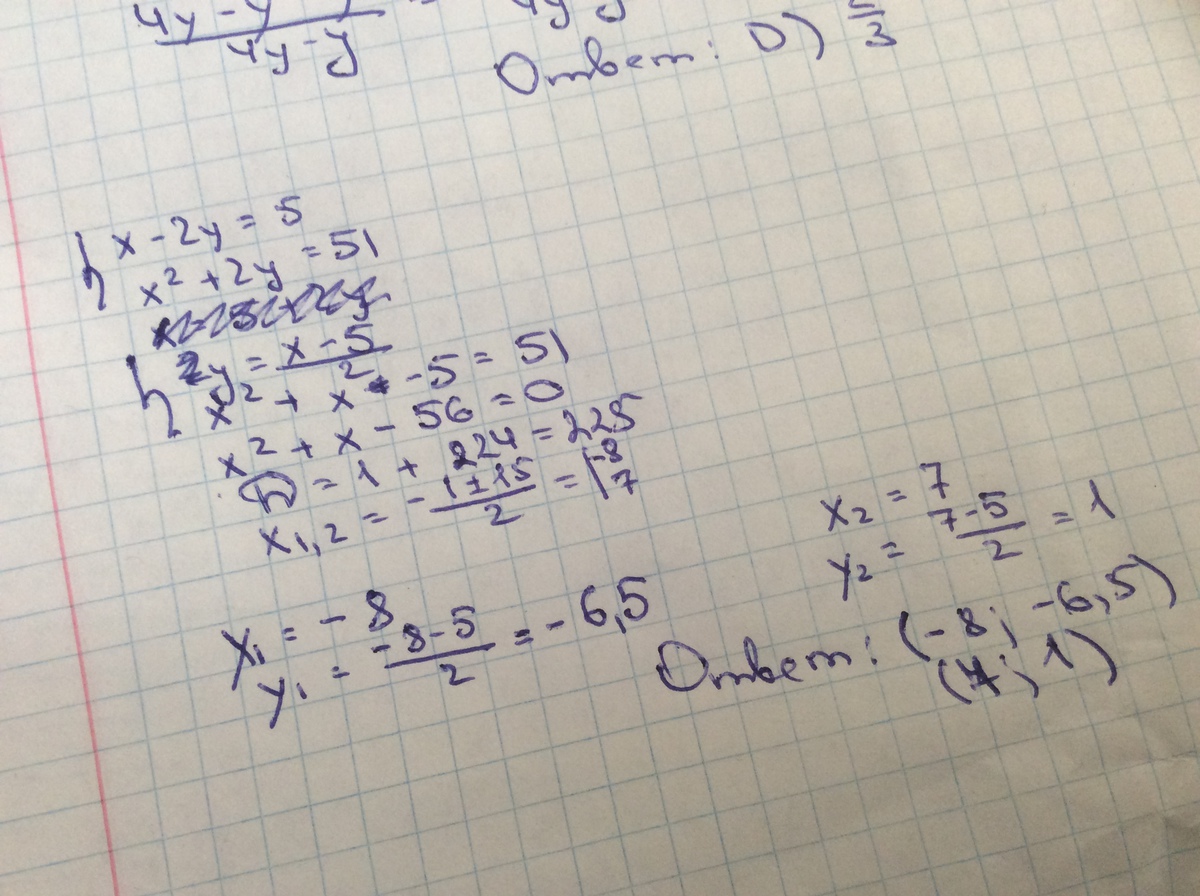 4y - y
4y - y
Ответ: D) 5/3
x - 2y = 5
x² + 2y = 51
2y = (x - 5)/2
x² + x - 5 = 51
x² + x - 56 = 0
D = 1 + 224 = 225
x₁,₂ = -(1 ± 15)/2 = [-8
7
x₁ = -8
y₁ = (-8-5)/2 = -6,5
x₂ = 7
y₂ = (7-5)/2 = 1
Ответ: (-8; -6,5)
(7; 1)